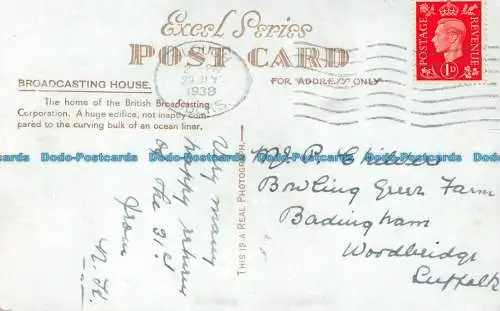 Excel Series
POST CARD
BROADCASTING HOUSE.
The home of the British Broadcasting
Corporation. A huge edifice, not inaptly com-
pared to the curving bulk of an ocean liner.
FOR ADDRESS ONLY
1938
POSTAGE
REVENUE
1D
THIS IS A REAL PHOTOGRAPH
Very many
happy returns
of the 31st
from
N. H.
Bowling Green Farm
Badingham
Woodbridge
Suffolk
Dodo-Postcards Dodo-Postcards Dodo-Postcards Dodo-Postcards Dodo-Postcards